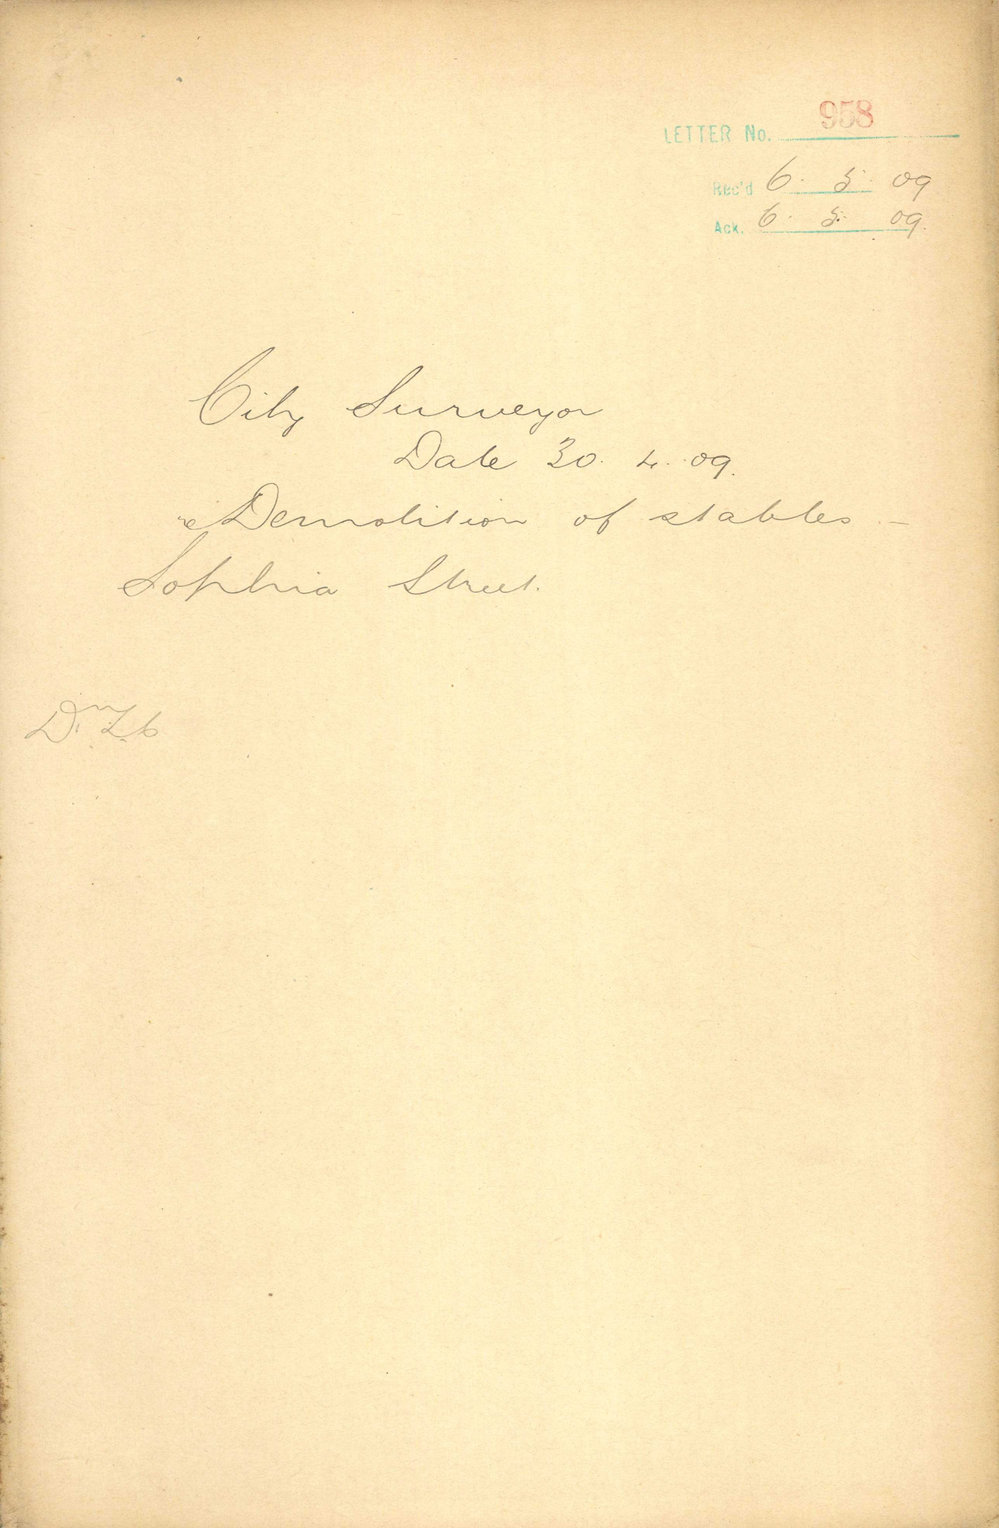 LETTER No. 958
Rec'd 6. 5. 09
Ack. 6. 5. 09.
City Surveyor
Date 30. 4. 09.
re Demolition of stables -
Sophia Street.